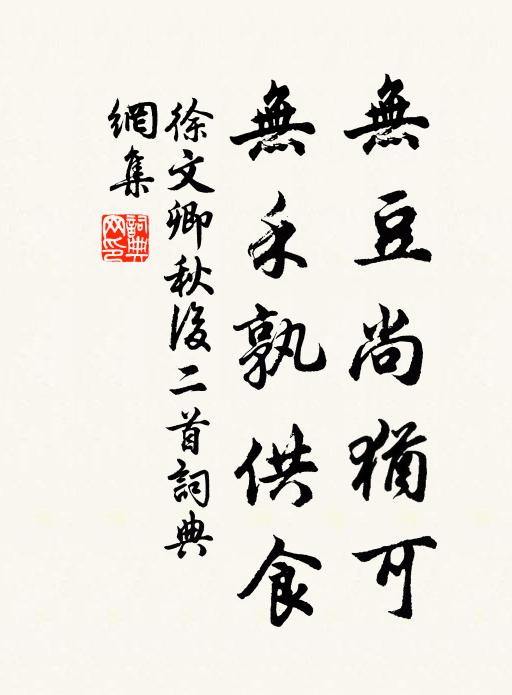 無豆尚猶可
無禾孰供食
徐文卿秋後二首詞典
網集
詞典網印